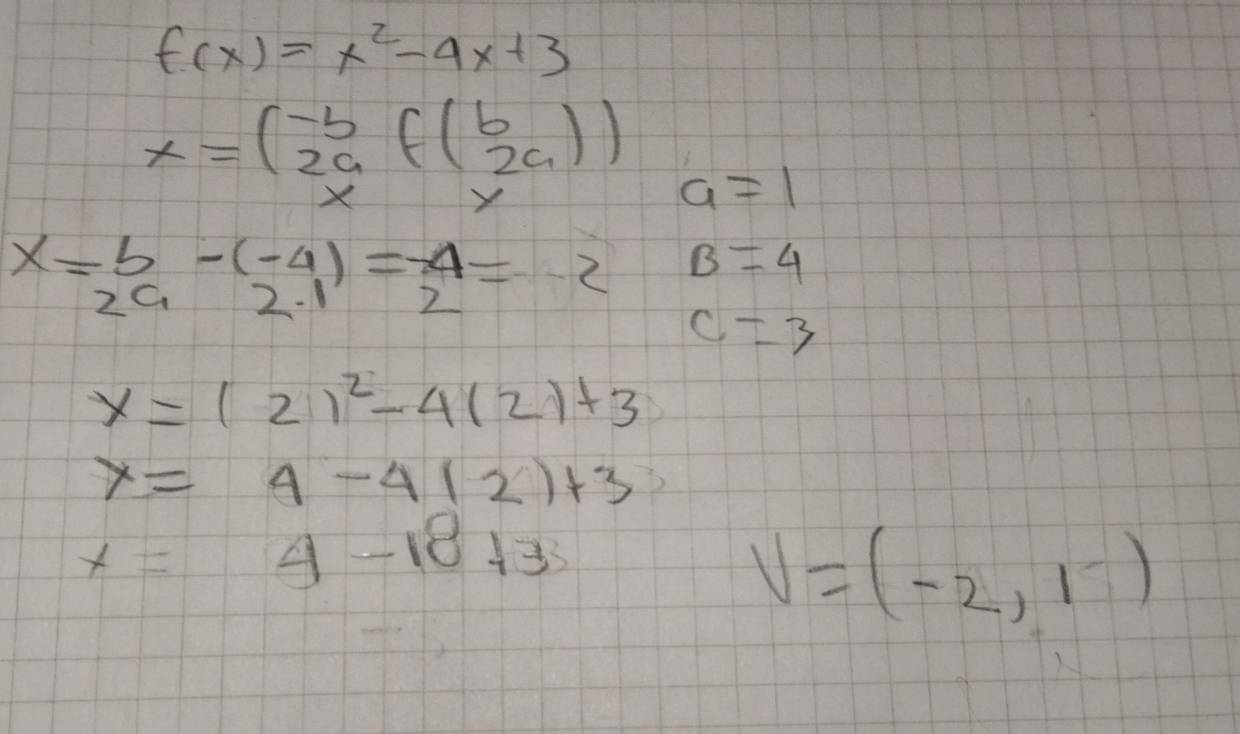 f(x) = x² - 4x + 3
x = (-b/2a f(b/2a))
x y
a = 1
x = b/2a -(-4)/2·1 = -4/2 = -2
B = 4
C = 3
y = (2)² - 4(2) + 3
y = 4 - 4(2) + 3
y = 4 - 18 + 3
V = (-2, 1 )